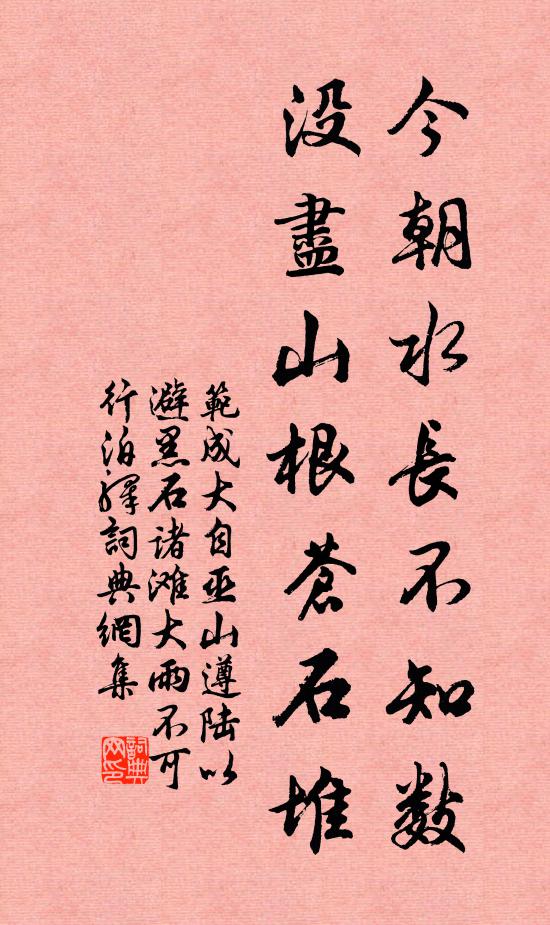 今朝水長不知數
没盡山根蒼石堆
範成大自巫山遵陸以
避黑石诸滩大雨不可
行泊驛詞典網集
詞典
网印